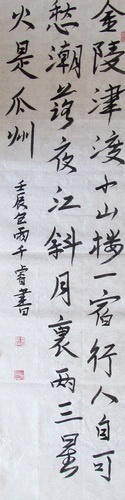 金陵津渡小山楼一宿行人自可
愁潮落夜江斜月裏两三星
火是瓜州
壬辰 雨千 書